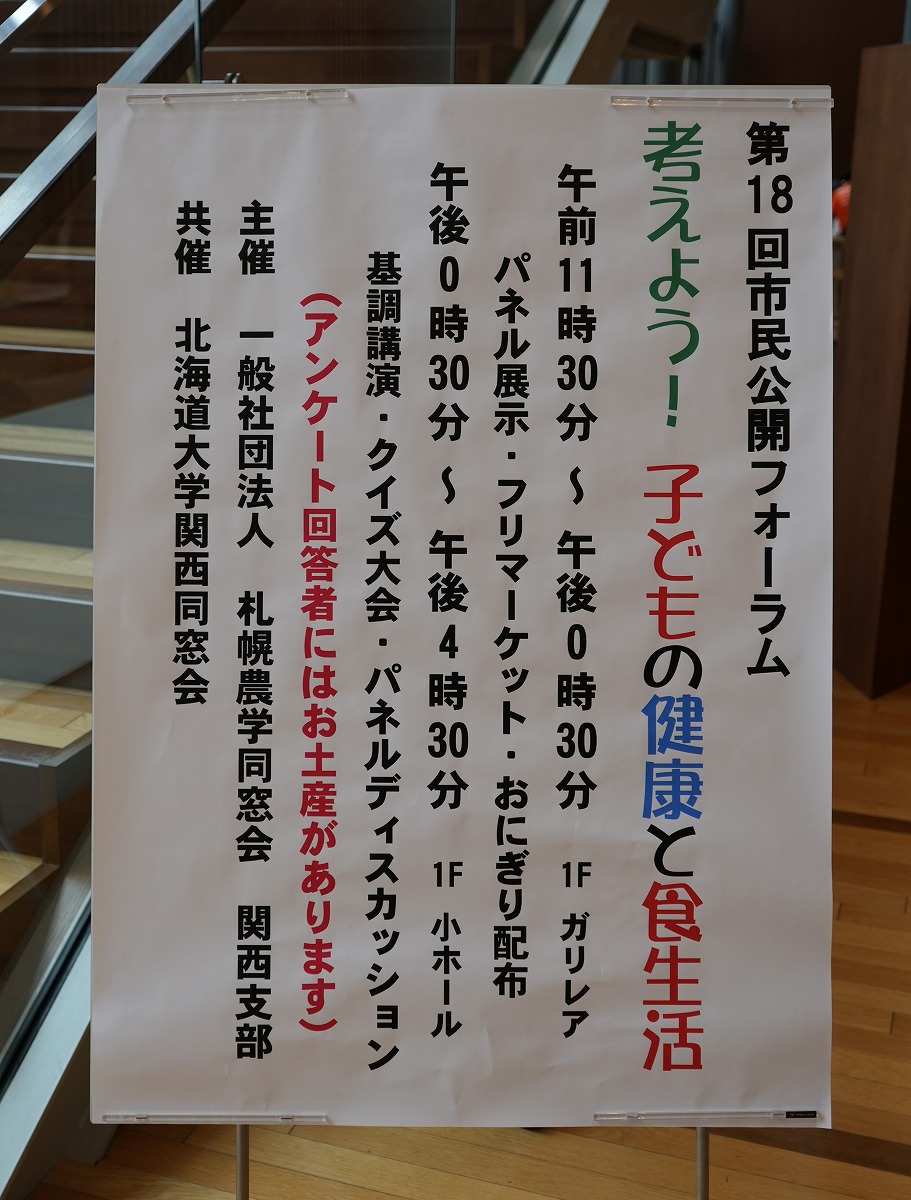 第18回市民公開フォーラム
考えよう！ 子どもの健康と食生活
午前11時30分～午後0時30分 1F ガリレア
パネル展示・フリマーケット・おにぎり配布
午後0時30分～午後4時30分 1F 小ホール
基調講演・クイズ大会・パネルディスカッション
（アンケート回答者にはお土産があります）
主催 一般社団法人 札幌農学同窓会 関西支部
共催 北海道大学関西同窓会